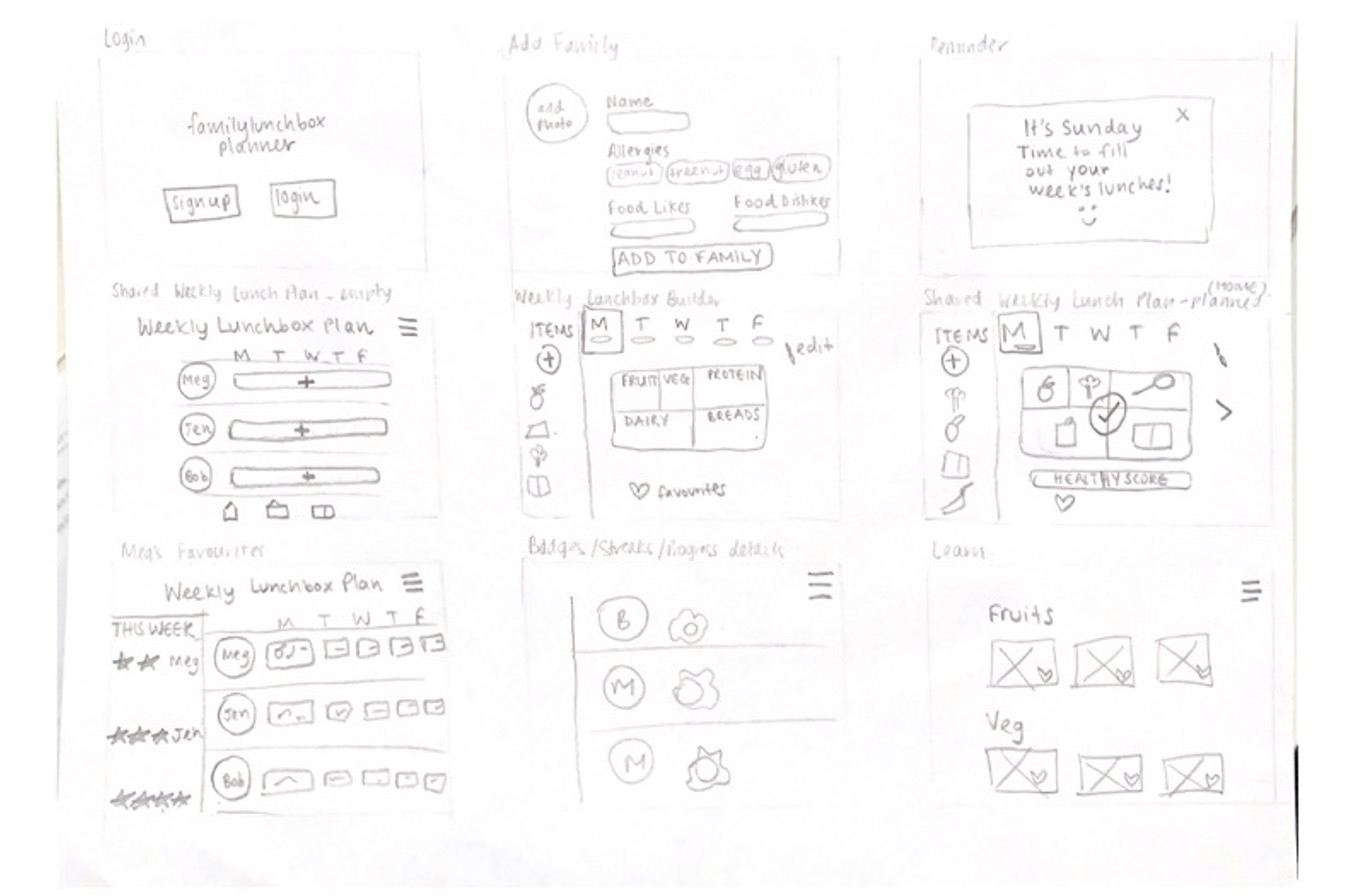 Login
familylunchbox
planner
sign up
login
Add Family
add
photo
Name
Allergies
peanut treenut egg gluten
Food Likes
Food Dislikes
ADD TO FAMILY
Reminder
X
It's Sunday
Time to fill
out your
week's lunches!
Shared Weekly Lunch Plan - empty
Weekly Lunchbox Plan
M T W T F
Meg
Jen
Bob
Weekly Lunchbox Builder
ITEMS
M T W T F
edit
FRUIT VEG PROTEIN
DAIRY BREADS
favourites
Shared Weekly Lunch Plan - planned
(HOME)
ITEMS
M T W T F
HEALTHY SCORE
Meg's Favourites
Weekly Lunchbox Plan
THIS WEEK
M T W T F
Meg
Meg
Jen
Jen
Bob
Badges/Streaks/Progress details
B
M
M
Learn
Fruits
Veg